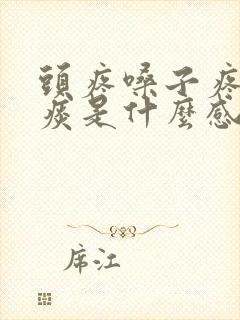 頭疼嗓子疼
痰是什麼感
席江